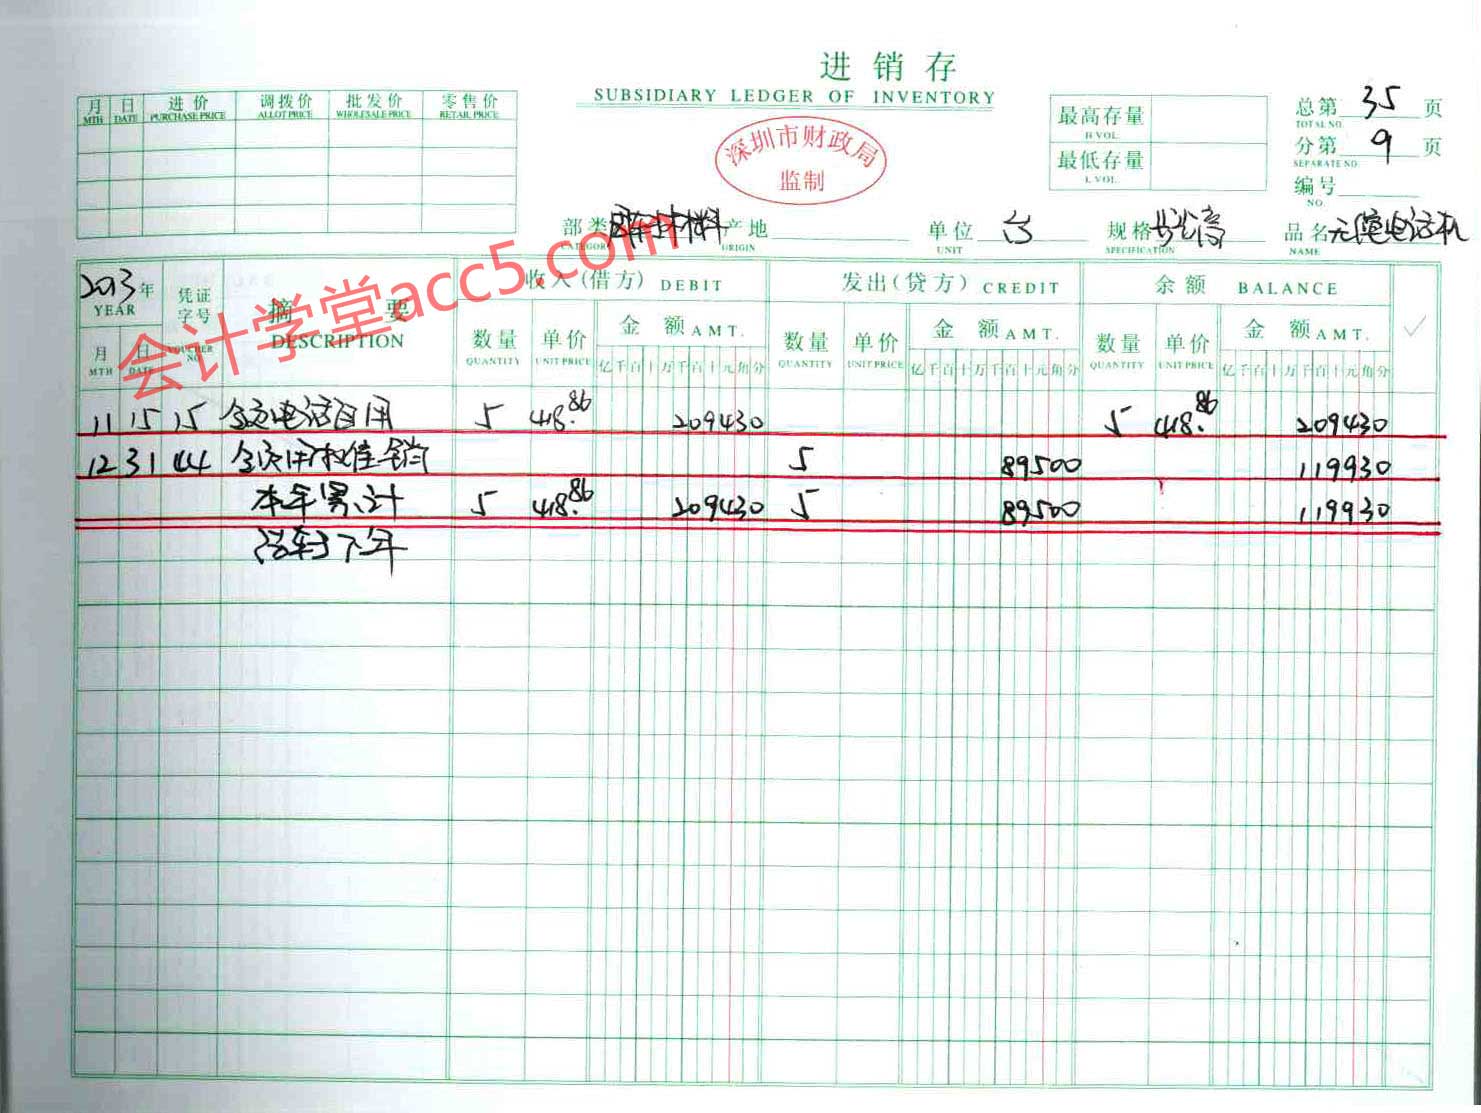 进销存
SUBSIDIARY LEDGER OF INVENTORY
深圳市财政局
监制
月 日 进价 调拨价 批发价 零售价
MTH DATE PURCHASE PRICE ALLOT PRICE WHOLESALE PRICE RETAIL PRICE
最高存量
H VOL.
最低存量
L VOL.
总第 35 页
TOTAL NO.
分第 9 页
SEPARATE NO.
编号
NO.
部类 材料 产地 单位 台 规格 步步高 品名 无绳电话机
CATEGORY ORIGIN UNIT SPECIFICATION NAME
会计学堂acc5.com
2013年 凭证字号 摘要 收入(借方) DEBIT 发出(贷方) CREDIT 余额 BALANCE
YEAR VOUCHER NO. DESCRIPTION
月 日 数量 单价 金额 AMT. 数量 单价 金额 AMT. 数量 单价 金额 AMT.
MTH DATE QUANTITY UNIT PRICE QUANTITY UNIT PRICE QUANTITY UNIT PRICE
亿千百十万千百十元角分 亿千百十万千百十元角分 亿千百十万千百十元角分
11 15 15 电话 用 5 418.86 209430 5 418.86 209430
12 31 44 销 5 89500 119930
本年累计 5 418.86 209430 5 89500 119930
结转下年